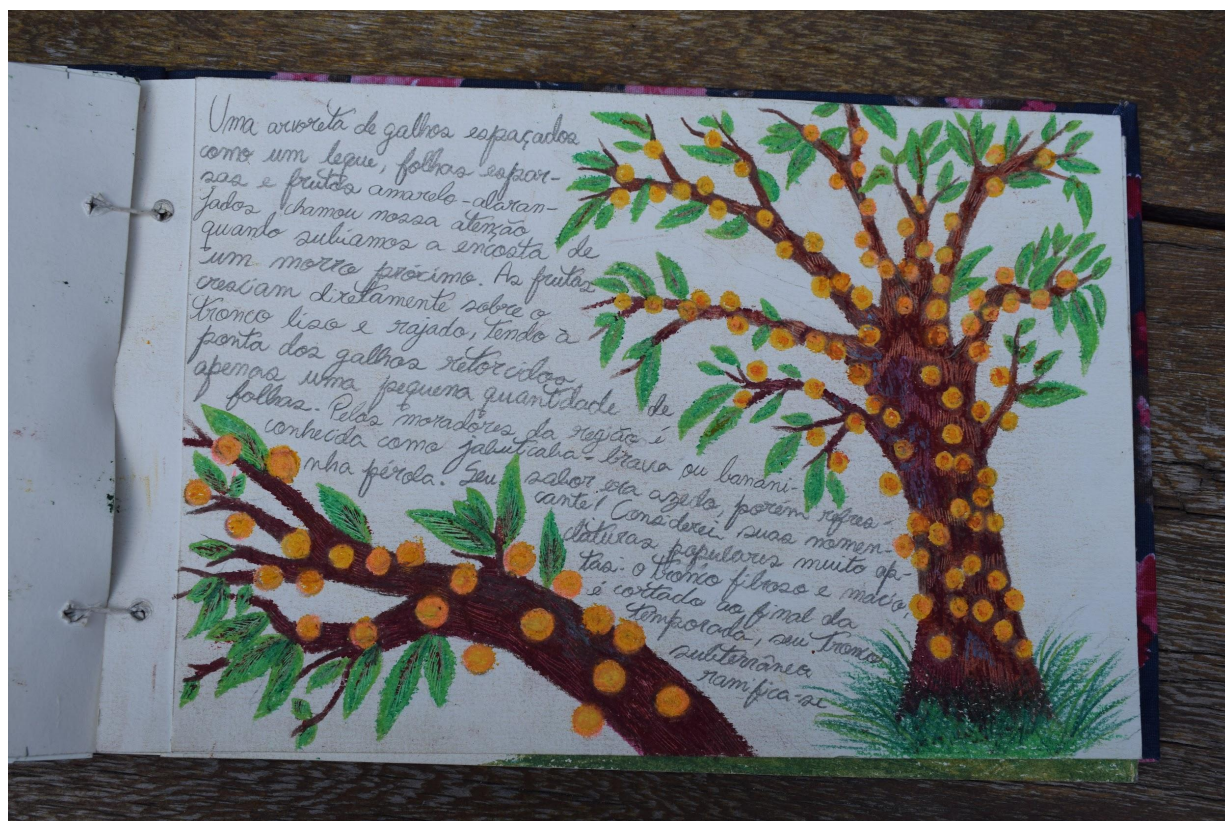 Uma arvoreta de galhos espaçados
como um leque, folhas espar-
sas e frutos amarelo-alaran-
jados chamou nossa atenção
quando subíamos a encosta de
um morro próximo. As frutas
cresciam diretamente sobre o
tronco liso e rajado, tendo à
ponta dos galhos retorcidos
apenas uma pequena quantidade de
folhas. Pelos moradores da região é
conhecida como jabuticaba-brava ou banani-
nha pérola. Seu sabor era azedo, porém refres-
cante! Considerei suas nomen-
claturas populares muito ap-
tas. O tronco fibroso e macio,
é cortado ao final da
temporada, seu tronco
subterrâneo
ramifica-se